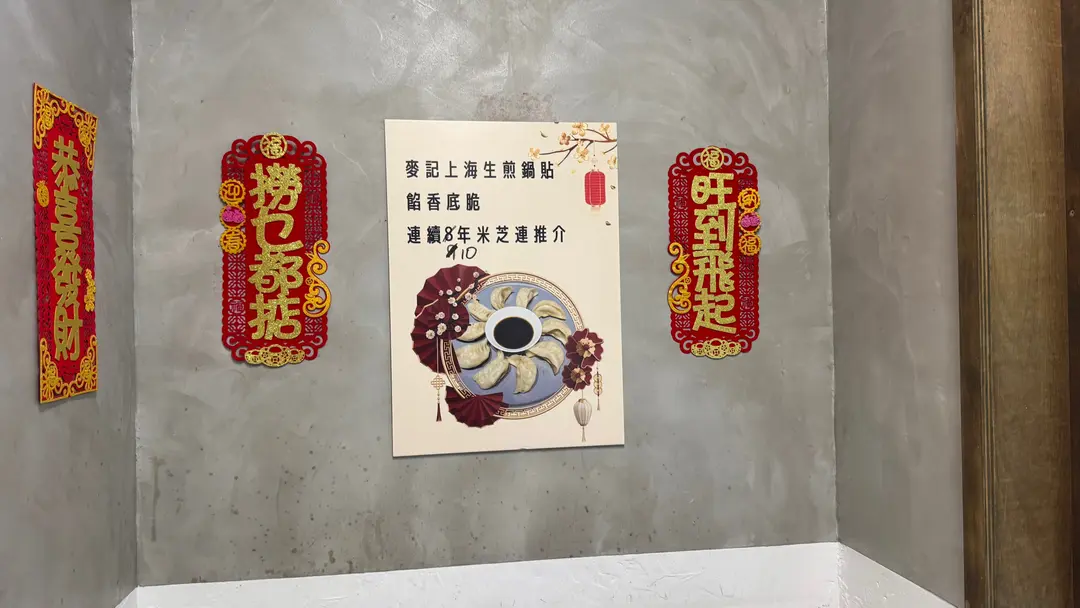 恭喜發財
福
撈乜都掂
迎
春
麥記上海生煎鍋貼
餡香底脆
連續8年米芝連推介
9 10
福
旺到飛起
納
福